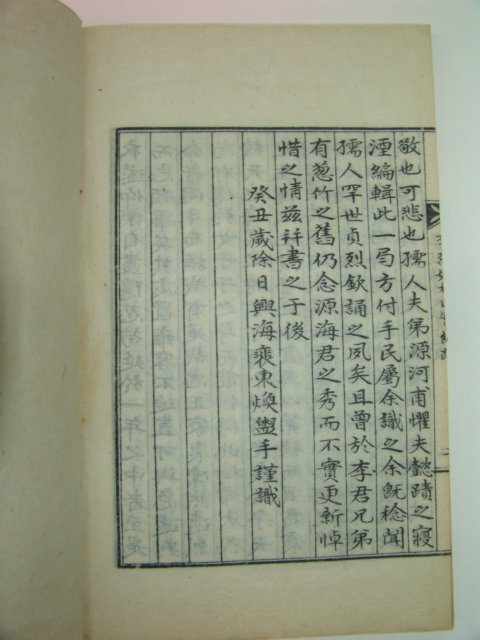 敬也可悲也孺人夫弟源河甫懼夫懿蹟之寢
湮編輯此一局方付手民屬余識之余旣稔聞
孺人罕世貞烈欽誦之夙矣且曾於李君兄弟
有葱竹之舊仍念源海君之秀而不實更新悼
惜之情玆幷書之于後
癸丑歲除日興海裵東煥盥手謹識